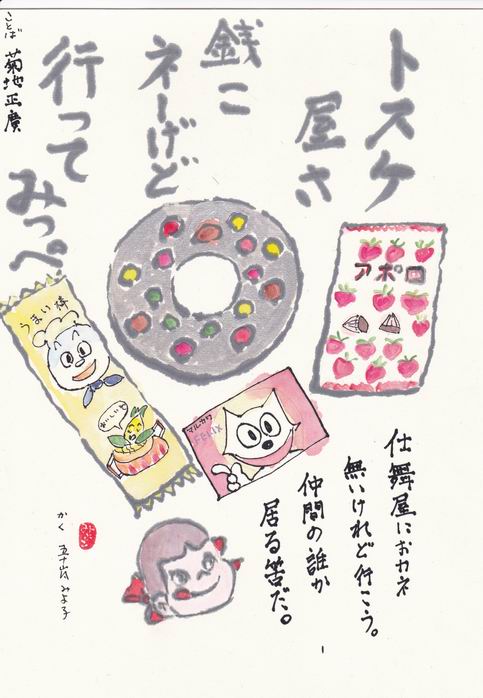 トスケ
屋さ
銭こ
ネーげど
行って
みっぺ。
ことば 菊地正廣
アポロ
うまい棒
おいしいよ
マルカワ
FELIX
仕舞屋におカネ
無いけれど行こう。
仲間の誰か
居る筈だ。
かく 五十嵐みよ子